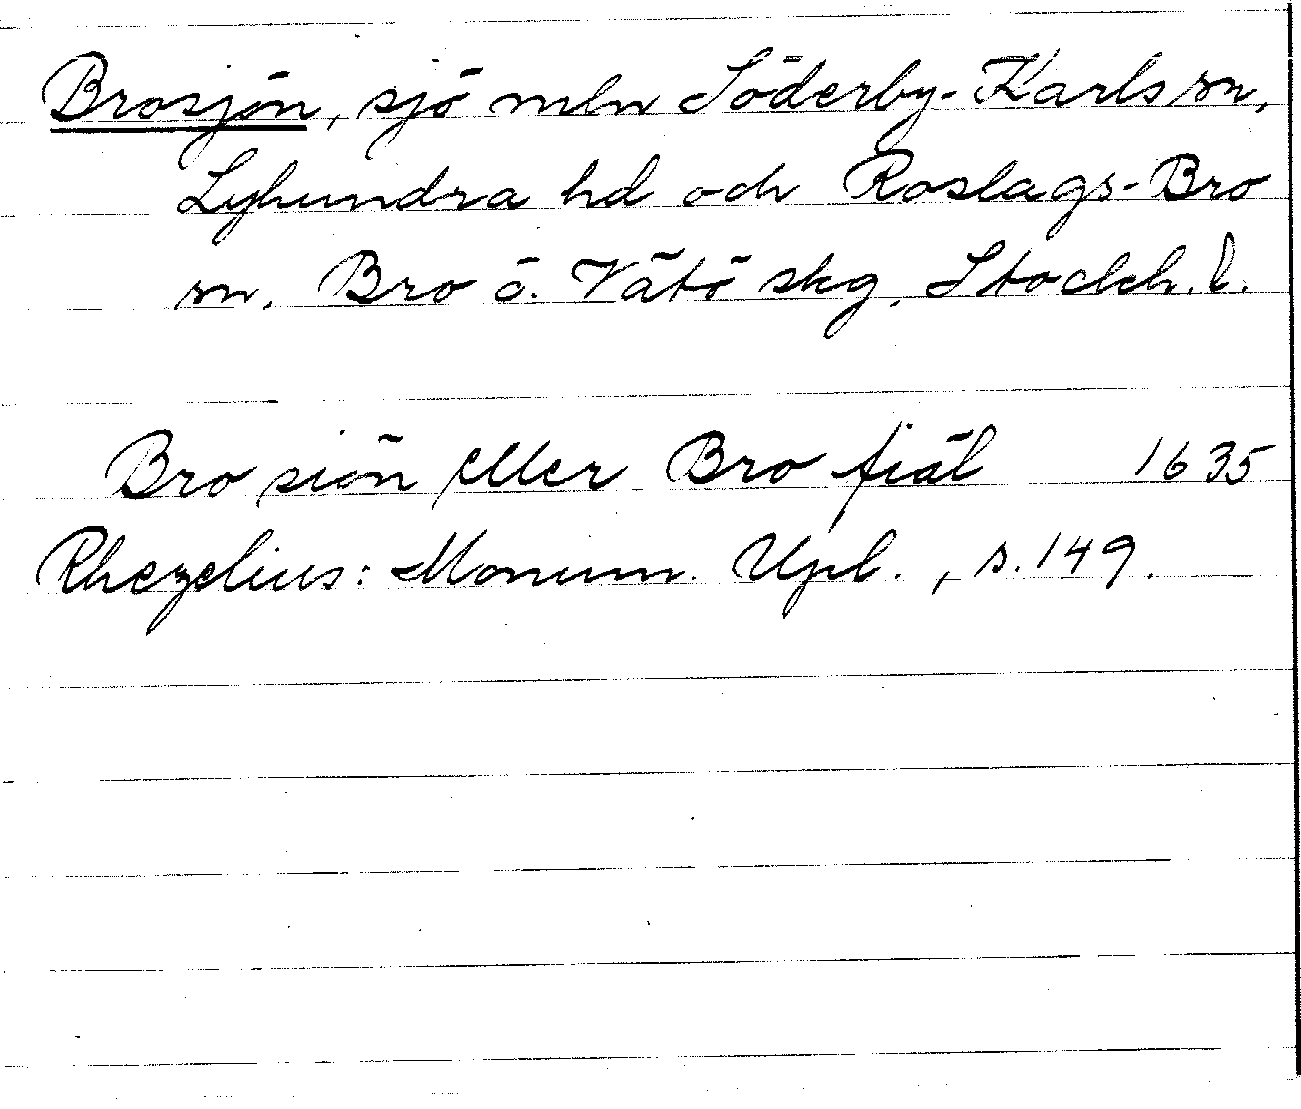 Brosjön, sjö mln Söderby-Karls sn,
Lyhundra hd och Roslags-Bro
sn. Bro o. Vätö skg. Stockh. l.
Bro siön eller Bro fiäl 1635
Rhezelius: Monum. Upl., s. 149.